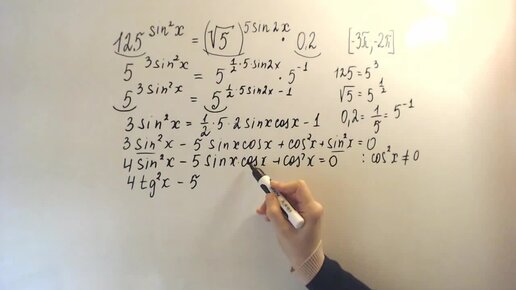 125^{sin²x} = (√5)^{5 sin 2x} · 0,2 [-3π, -2π]
5^{3 sin²x} = 5^{½·5 sin 2x} · 5^{-1} 125 = 5³
5^{3 sin²x} = 5^{½·5 sin 2x - 1} √5 = 5^{½}
3 sin²x = ½ · 5 · 2 sin x cos x - 1 0,2 = 1/5 = 5^{-1}
3 sin²x - 5 sin x cos x + cos²x + sin²x = 0
4 sin²x - 5 sin x cos x + cos²x = 0 : cos²x ≠ 0
4 tg²x - 5